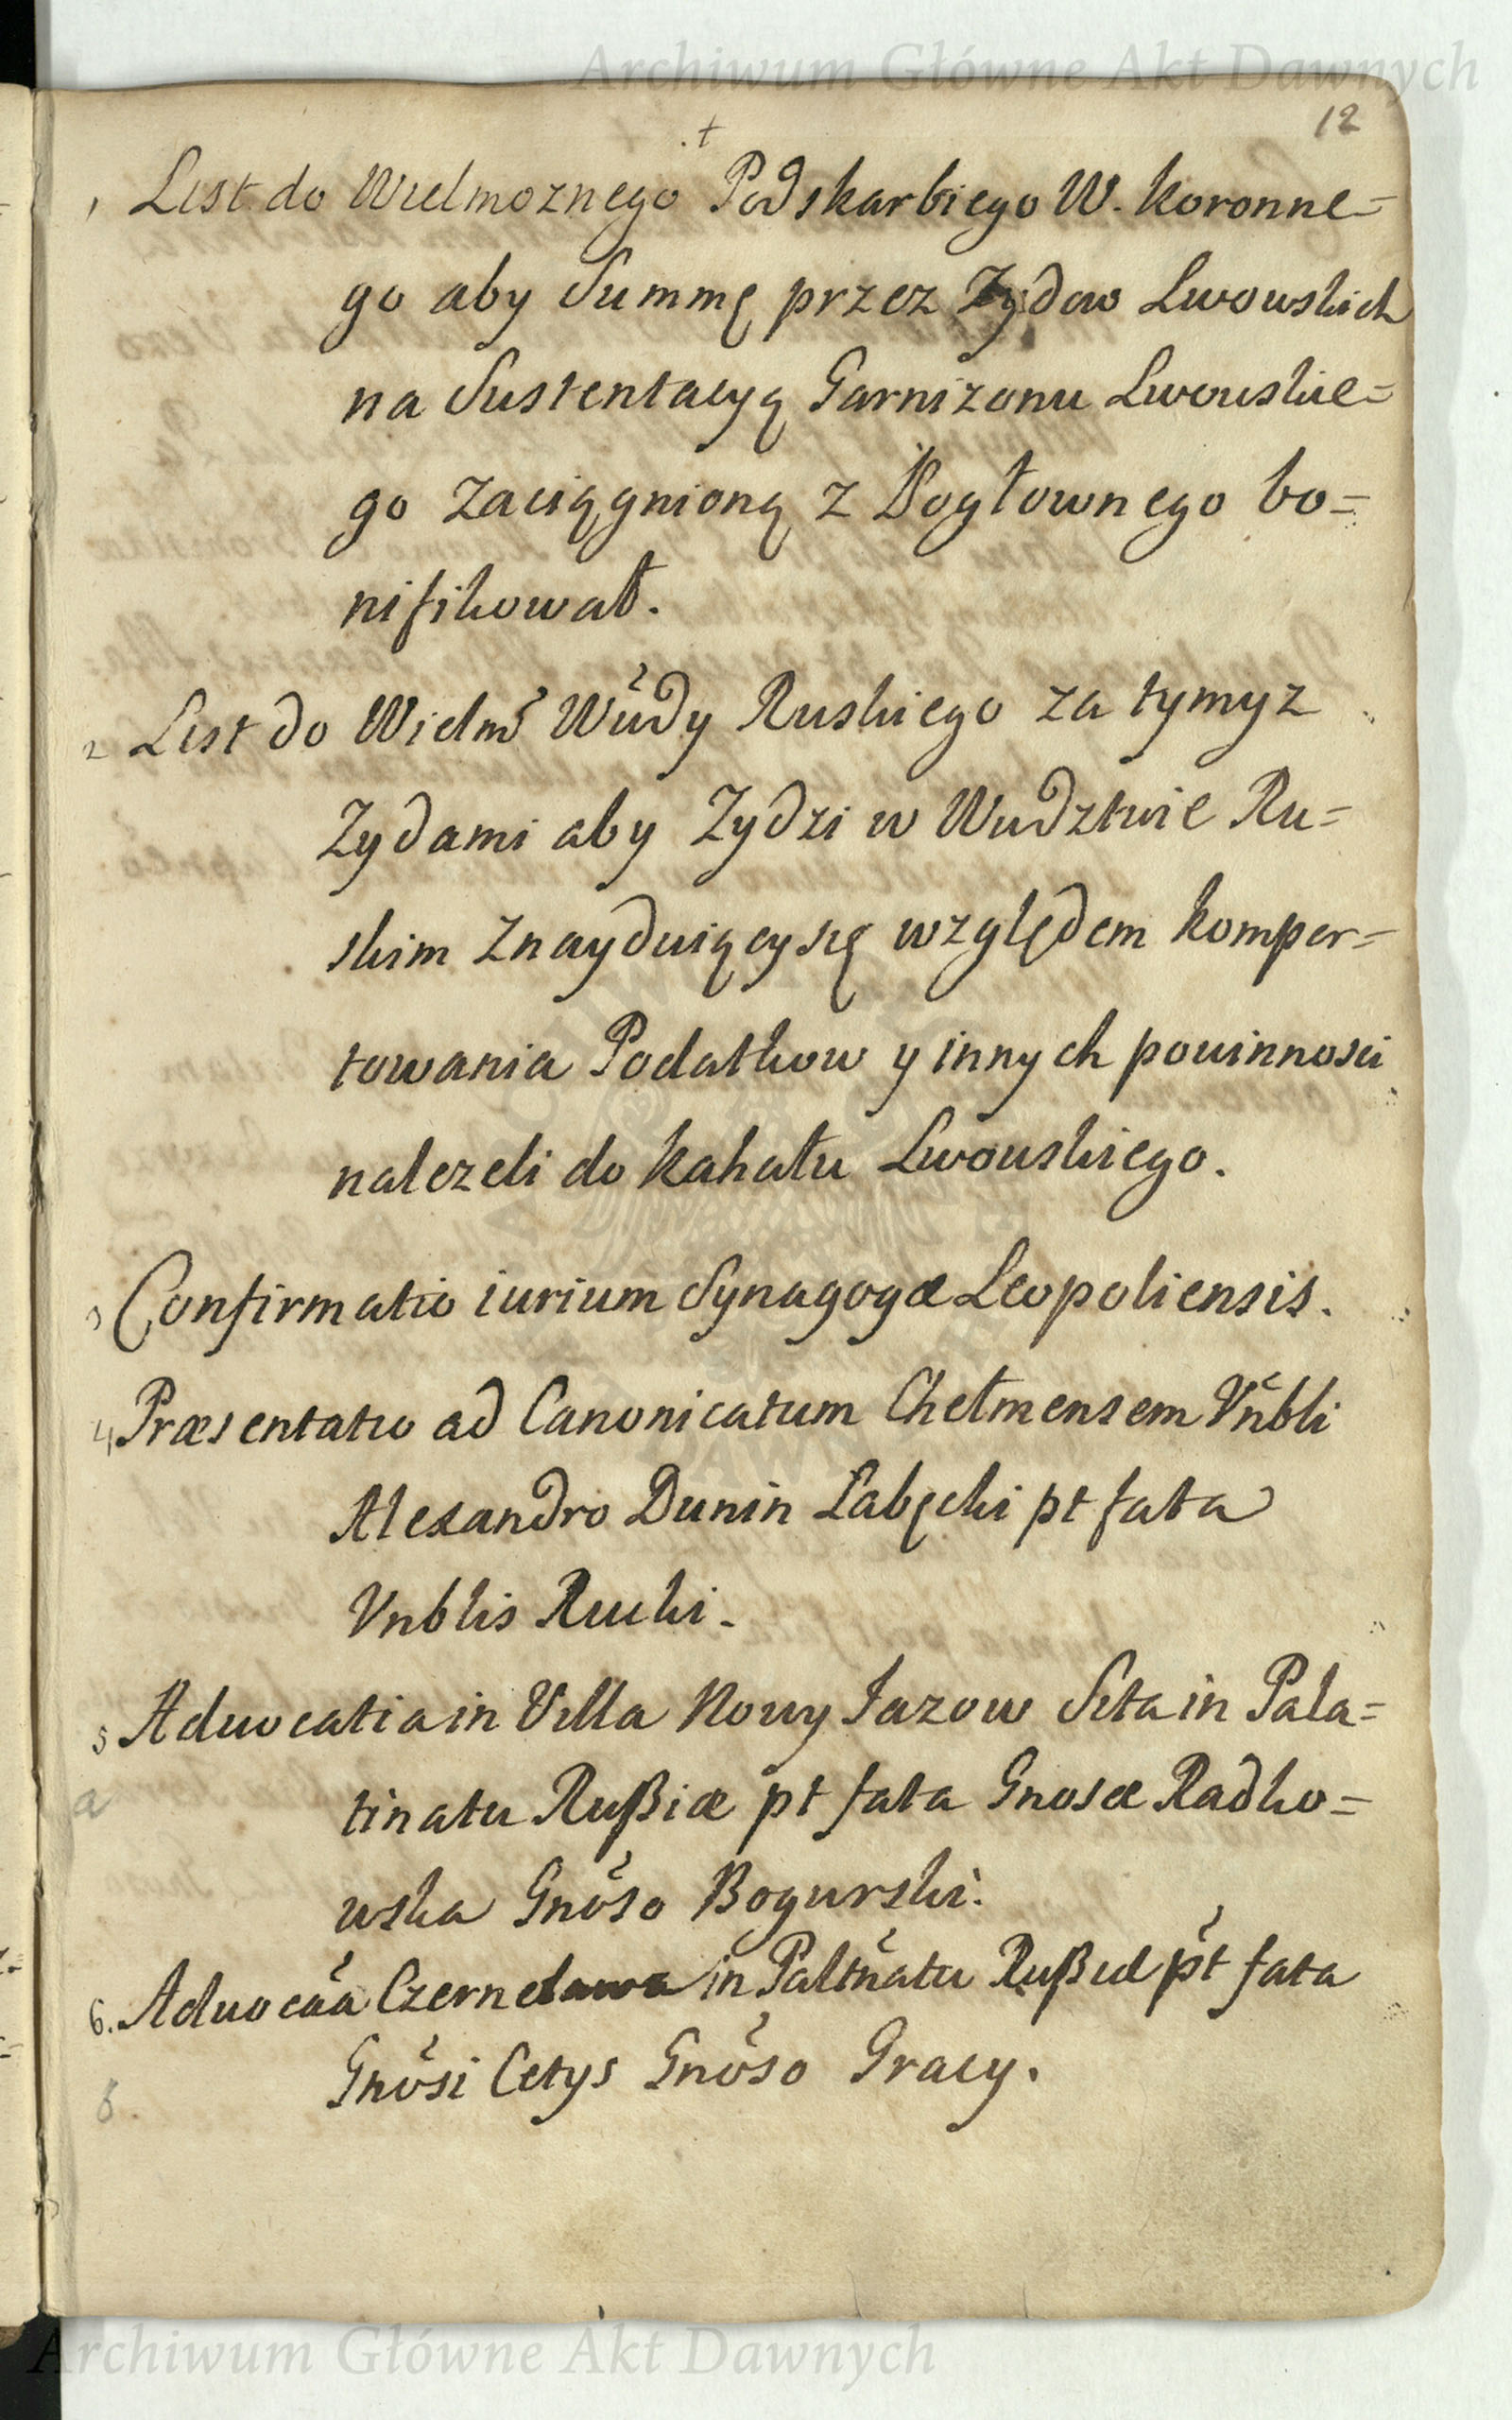 Archiwum Główne Akt Dawnych
12
1 List do Wielmoznego Podskarbiego W. Koronne=
go aby Summę przez Zydow Lwowskich
na Sustentacyą Garnizonu Lwowskie=
go zaciągnioną z Pogłownego bo=
nifikował.
2 List do Wielmo Wudy Ruskiego za tymyz
Zydami aby Zydzi w Wudztwie Ru=
skim znayduiący się względem kompor=
towania Podatkow y innych powinnosci
nalezeli do Kahału Lwowskiego.
3 Confirmatio iurium Synagogæ Leopoliensis.
4 Præsentatio ad Canonicatum Chełmensem Vnbli
Alexandro Dunin Łabęcki pt fata
Vnblis Rucki.
5 Aduocatia in Villa Nowy Jazow Sita in Pala=
a
tinatu Rußiæ pt fata Gnosæ Radko=
wska Gnoso Bogurski.
6. Aduocaa in Paltnatu Rußiæ pt fata
Gnosi Cetys Gnoso Gracy.
b
Archiwum Główne Akt Dawnych